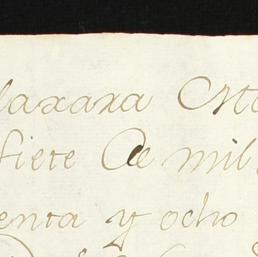 laxara Ma
siete de mil
enta y ocho